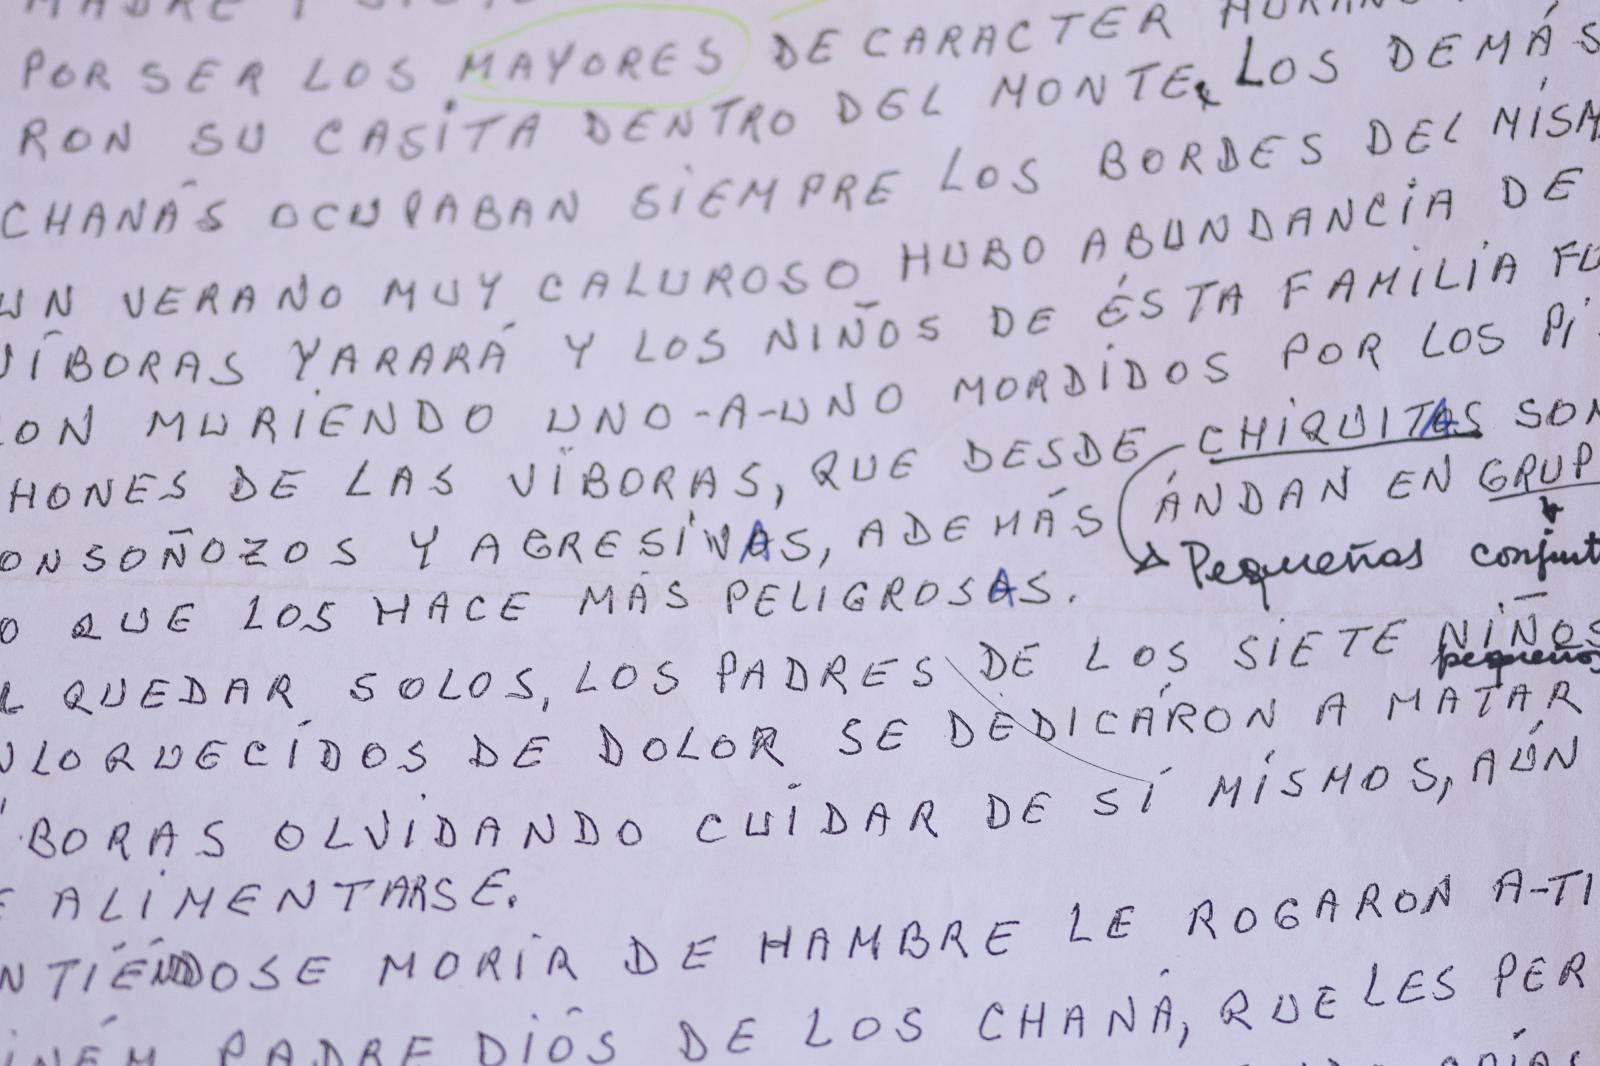 POR SER LOS MAYORES DE CARACTER
RON SU CASITA DENTRO DEL MONTE. LOS DEMÁS
CHANÁS OCUPABAN SIEMPRE LOS BORDES DEL MISM
UN VERANO MUY CALUROSO HUBO ABUNDANCIA DE
VÍBORAS YARARÁ Y LOS NIÑOS DE ÉSTA FAMILIA FU
RON MURIENDO UNO-A-UNO MORDIDOS POR LOS PI
HONES DE LAS VÍBORAS, QUE DESDE CHIQUITAS SON
ONSOÑOZOS Y AGRESIVAS, ADEMÁS ÁNDAN EN GRUP
Pequeñas conjunt
O QUE LOS HACE MÁS PELIGROSAS.
L QUEDAR SOLOS, LOS PADRES DE LOS SIETE NIÑOS
pequeños
NLOQUECÍDOS DE DOLOR SE DEDICÁRON A MATAR
ÍBORAS OLVIDANDO CUÍDAR DE SÍ MÍSMOS, AÚN
E ALIMENTARSE.
NTIÉNDOSE MORIR DE HAMBRE LE ROGARON A-TI
PADRE DIÓS DE LOS CHANÁ, QUE LES PER